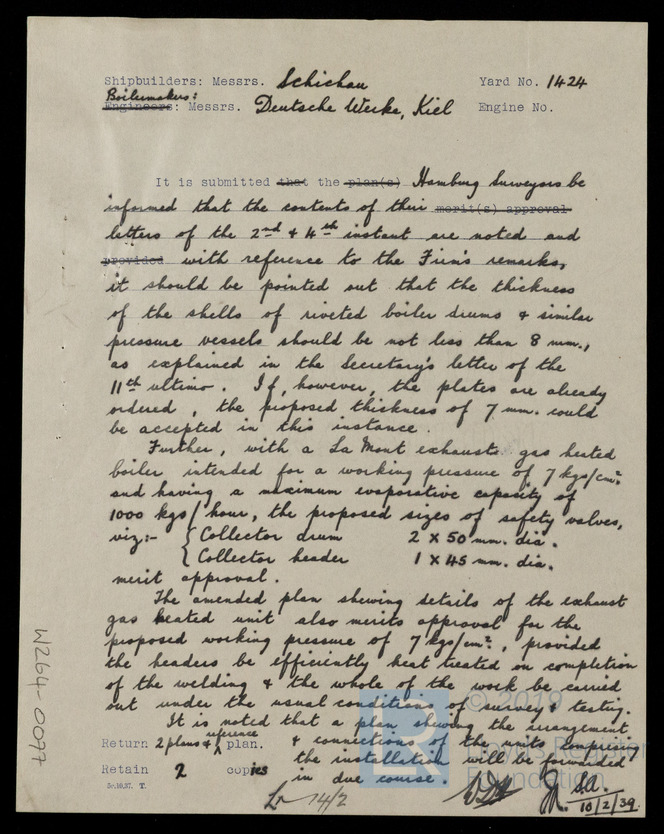 Shipbuilders: Messrs. Schichau Yard No. 1424
Boilermakers:
Engineers: Messrs. Deutsche Werke, Kiel Engine No.
It is submitted that the plan(s) Hamburg Surveyors be
informed that the contents of their merit(s) approval
letters of the 2nd & 4th instant are noted and
provided with reference to the Firm's remarks,
it should be pointed out that the thickness
of the shells of riveted boiler drums & similar
pressure vessels should be not less than 8 mm.,
as explained in the Secretary's letter of the
11th ultimo. If, however, the plates are already
ordered, the proposed thickness of 7 mm. could
be accepted in this instance.
Further, with a La Mont exhaust gas heated
boiler intended for a working pressure of 7 kgs/cm²
and having a maximum evaporative capacity of
1000 kgs/hour, the proposed sizes of safety valves,
viz:- { Collector drum 2 x 50 mm. dia.
{ Collector header 1 x 45 mm. dia.
merit approval.
The amended plan shewing details of the exhaust
gas heated unit also merits approval for the
proposed working pressure of 7 kgs/cm²., provided
the headers be efficiently heat treated on completion
of the welding & the whole of the work be carried
out under the usual conditions of survey & testing.
It is noted that a plan shewing the arrangement
Return 2 plans & reference plan. & connections of the units comprising
the installation will be forwarded
Retain 2 copies in due course.
14/2
10/2/39
W264-0077
© 2019
Foundation